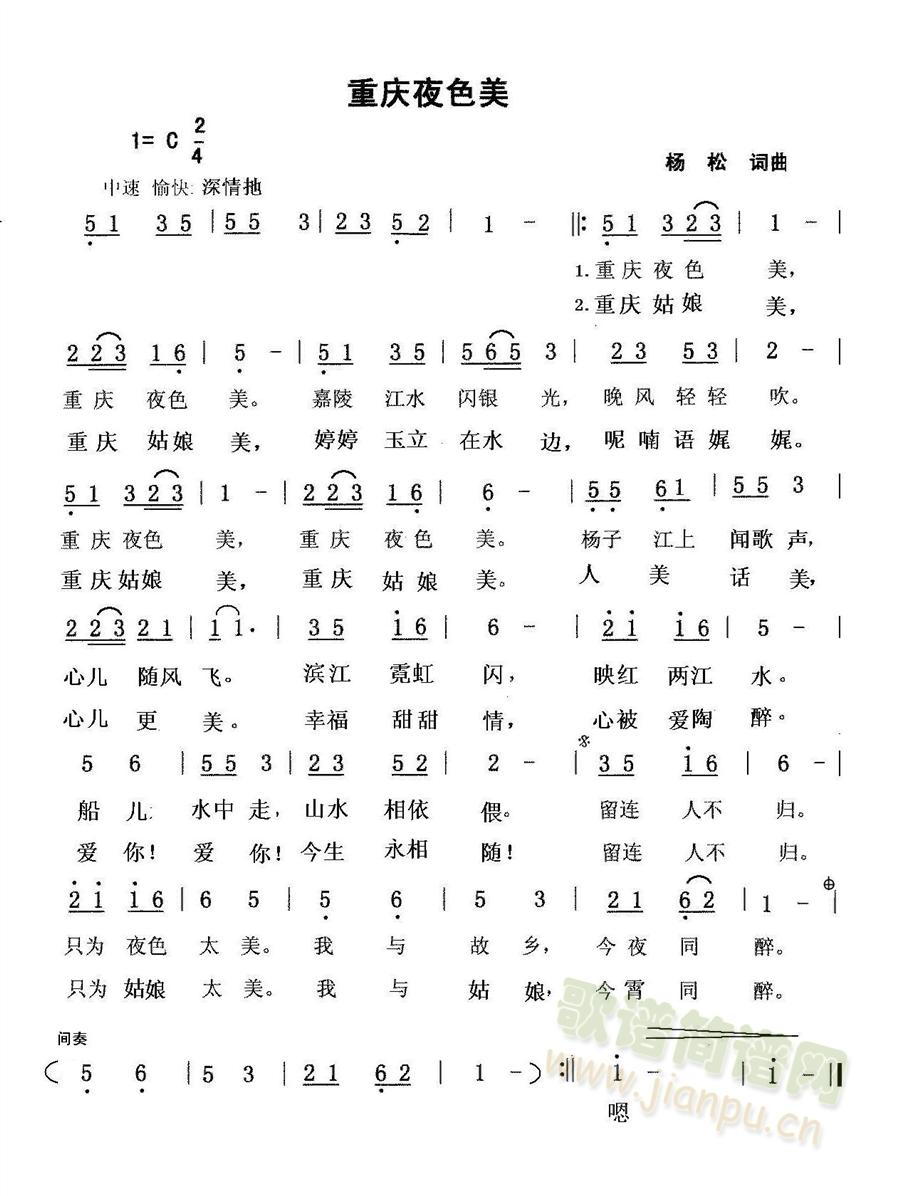 重庆夜色美
1= C 2/4
杨 松 词曲
中速 愉快 深情地
5 1 3 5 | 5 5 3 | 2 3 5 2 | 1 - ‖: 5 1 3 2 3 | 1 - |
1.重庆夜色 美，
2.重庆姑娘 美，
2 2 3 1 6 | 5 - | 5 1 3 5 | 5 6 5 3 | 2 3 5 3 | 2 - |
重庆 夜色 美。 嘉陵 江水 闪银 光， 晚风 轻轻 吹。
重庆 姑娘 美， 婷婷 玉立 在水 边， 呢喃语娓 娓。
5 1 3 2 3 | 1 - | 2 2 3 1 6 | 6 - | 5 5 6 1 | 5 5 3 |
重庆 夜色 美， 重庆 夜色 美。 杨子 江上 闻歌 声，
重庆姑娘 美， 重庆 姑娘 美。 人 美 话 美，
2 2 3 2 1 | 1 1. | 3 5 1 6 | 6 - | 2 1 1 6 | 5 - |
心儿 随风 飞。 滨江 霓虹 闪， 映红 两江 水。
心儿 更 美。 幸福 甜甜 情， 心被 爱陶 醉。
5 6 | 5 5 3 | 2 3 5 2 | 2 - | 3 5 1 6 | 6 - |
船 儿 水中 走， 山水 相依 偎。 留连 人不 归。
爱 你！ 爱 你！ 今生 永相 随！ 留连 人不 归。
2 1 1 6 | 6 5 | 5 6 | 5 3 | 2 1 6 2 | 1 - |
只为 夜色 太 美。 我 与 故 乡， 今夜 同 醉。
只为 姑娘 太 美。 我 与 姑 娘， 今宵 同 醉。
间奏
( 5 6 | 5 3 | 2 1 6 2 | 1 - ) :‖ 1 - | 1 - ‖
嗯
歌谱简谱网
www.jianpu.cn